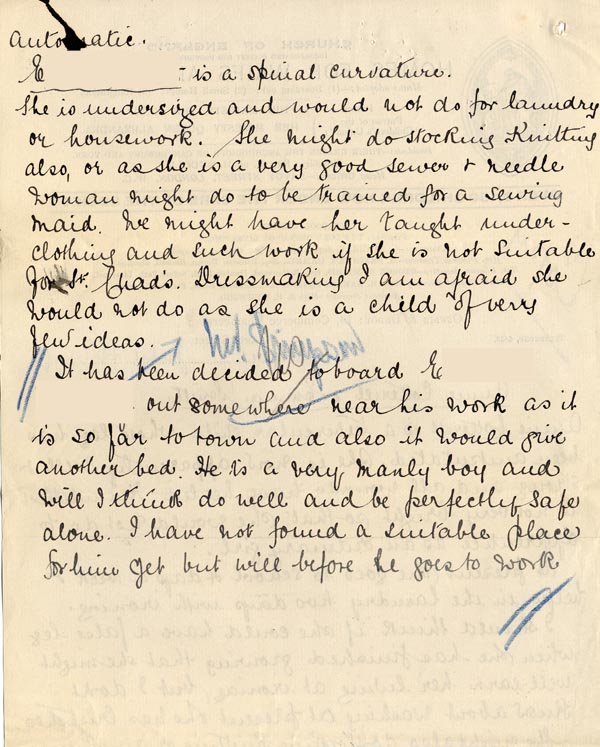 automatic.
E - is a spinal curvature.
She is undersized and would not do for laundry
or housework. She might do stocking Knitting
also, or as she is a very good sewer & needle
woman might do to be trained for a sewing
maid. We might have her taught under-
clothing and such work if she is not suitable
for St. Chad's. Dressmaking I am afraid she
would not do as she is a child of very
few ideas.
It has been decided to board E
out somewhere near his work as it
is so far to town and also it would give
another bed. He is a very manly boy and
will I think do well and be perfectly safe
alone. I have not found a suitable place
for him yet but will before he goes to work